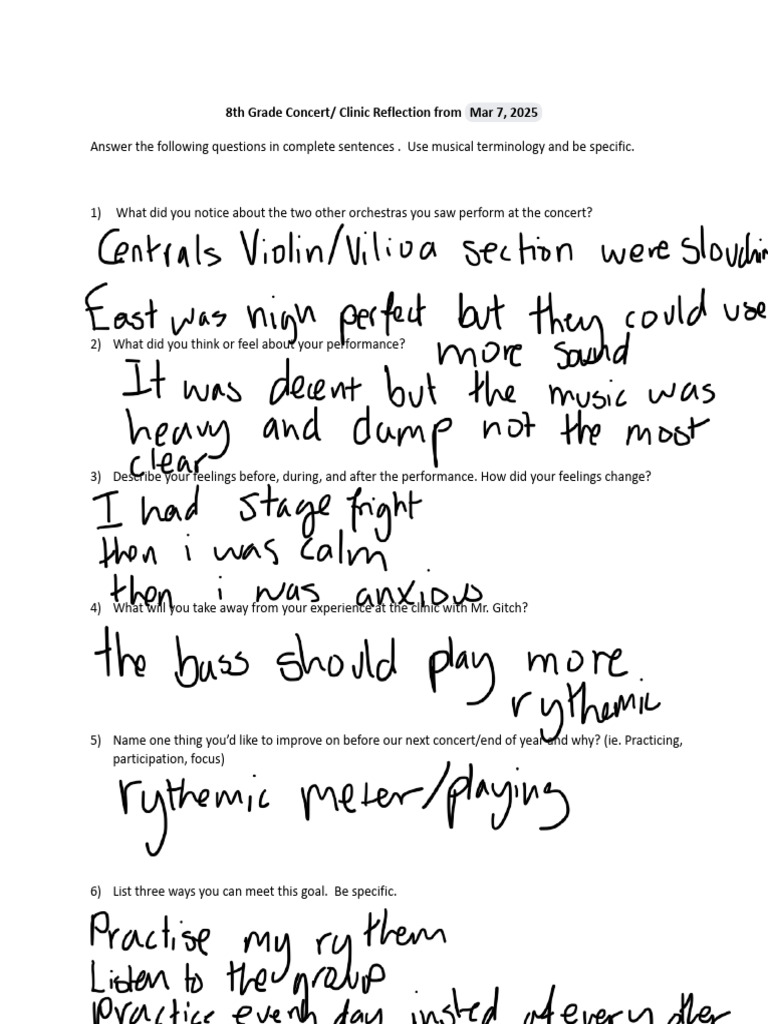 8th Grade Concert/ Clinic Reflection from Mar 7, 2025
Answer the following questions in complete sentences . Use musical terminology and be specific.
1) What did you notice about the two other orchestras you saw perform at the concert?
Centrals Violin/Viliva section were slouchin
East was nign perfect but they could use
more sound
2) What did you think or feel about your performance?
It was decent but the music was
heavy and damp not the most
clear
3) Describe your feelings before, during, and after the performance. How did your feelings change?
I had stage fright
then i was calm
then i was anxious
4) What will you take away from your experience at the clinic with Mr. Gitch?
the bass should play more
rythemic
5) Name one thing you'd like to improve on before our next concert/end of year and why? (ie. Practicing,
participation, focus)
rythemic meter/playing
6) List three ways you can meet this goal. Be specific.
Practise my rythem
Listen to the group
Practice every day insted of every other